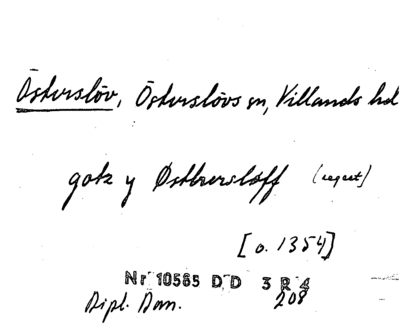 Österslöv, Österslövs sn, Villands hd
gotz y Østhersløff (regest)
[o. 1354]
Nr 10565 DD 3 R 4
Dipl. Dan. 208